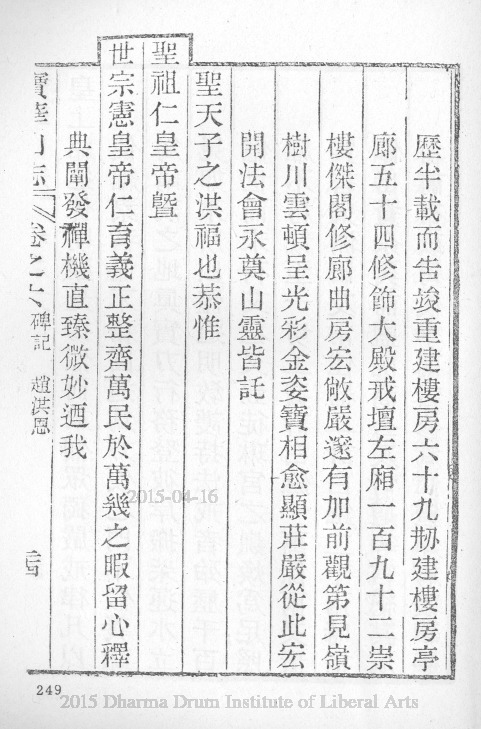 歷半載而告竣重建樓房六十九刱建樓房亭
廊五十四修飾大殿戒壇左廂一百九十二崇
樓傑閣修廊曲房宏敞嚴邃有加前觀第見嶺
樹川雲頓呈光彩金姿寶相愈顯莊嚴從此宏
開法會永奠山靈皆託
聖天子之洪福也恭惟
聖祖仁皇帝曁
世宗憲皇帝仁育義正整齊萬民於萬幾之暇留心釋
典闡發禪機直臻微妙迺我
寶華山志 卷之六 碑記 趙洪恩 三四
2015-04-16
249
2015 Dharma Drum Institute of Liberal Arts